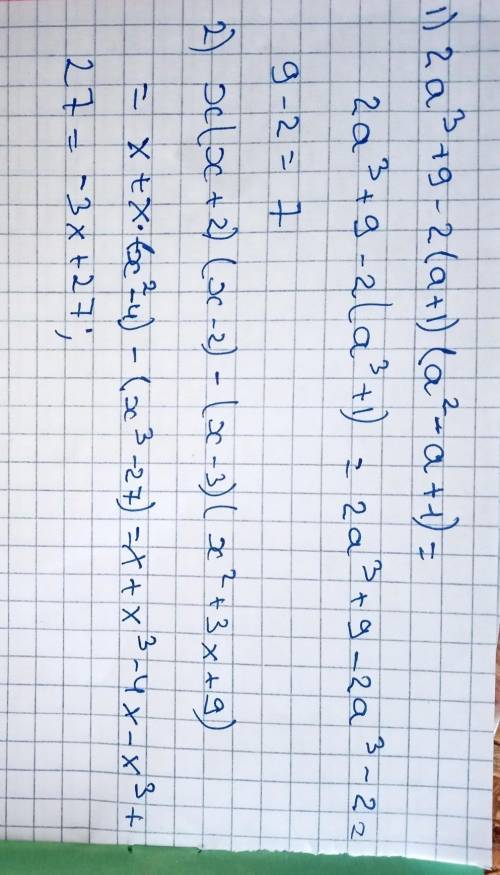 1) 2a³+9-2(a+1)(a²-a+1)=
2a³+9-2(a³+1) = 2a³+9-2a³-2=
9-2=7
2) x(x+2)(x-2)-(x-3)(x²+3x+9)
= x+x·(x²-4)-(x³-27)=x+x³-4x-x³+
27=-3x+27;